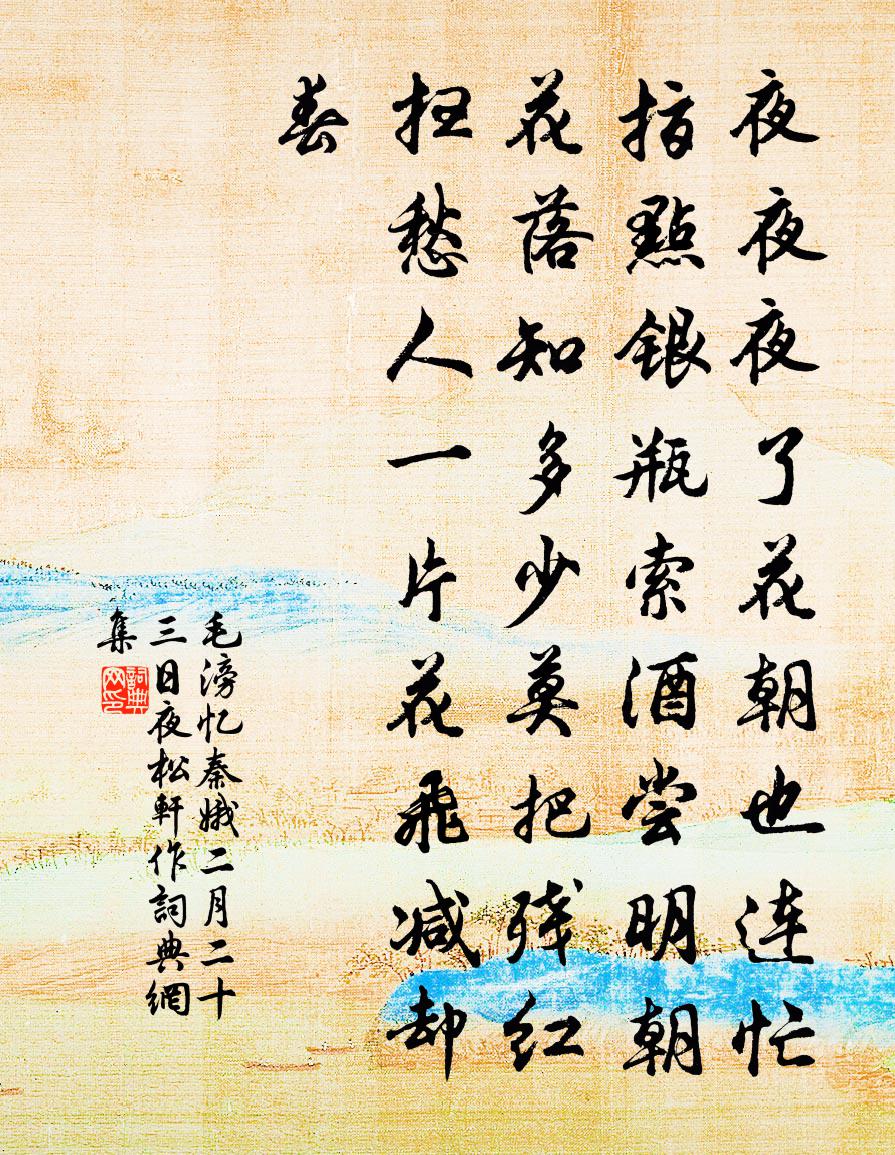 夜夜夜了花朝也连忙
指點银瓶索酒尝明朝
花落知多少莫把残红
扫愁人一片花飛减却
春
毛滂忆秦娥二月二十
三日夜松軒作詞典網
集
詞典網印